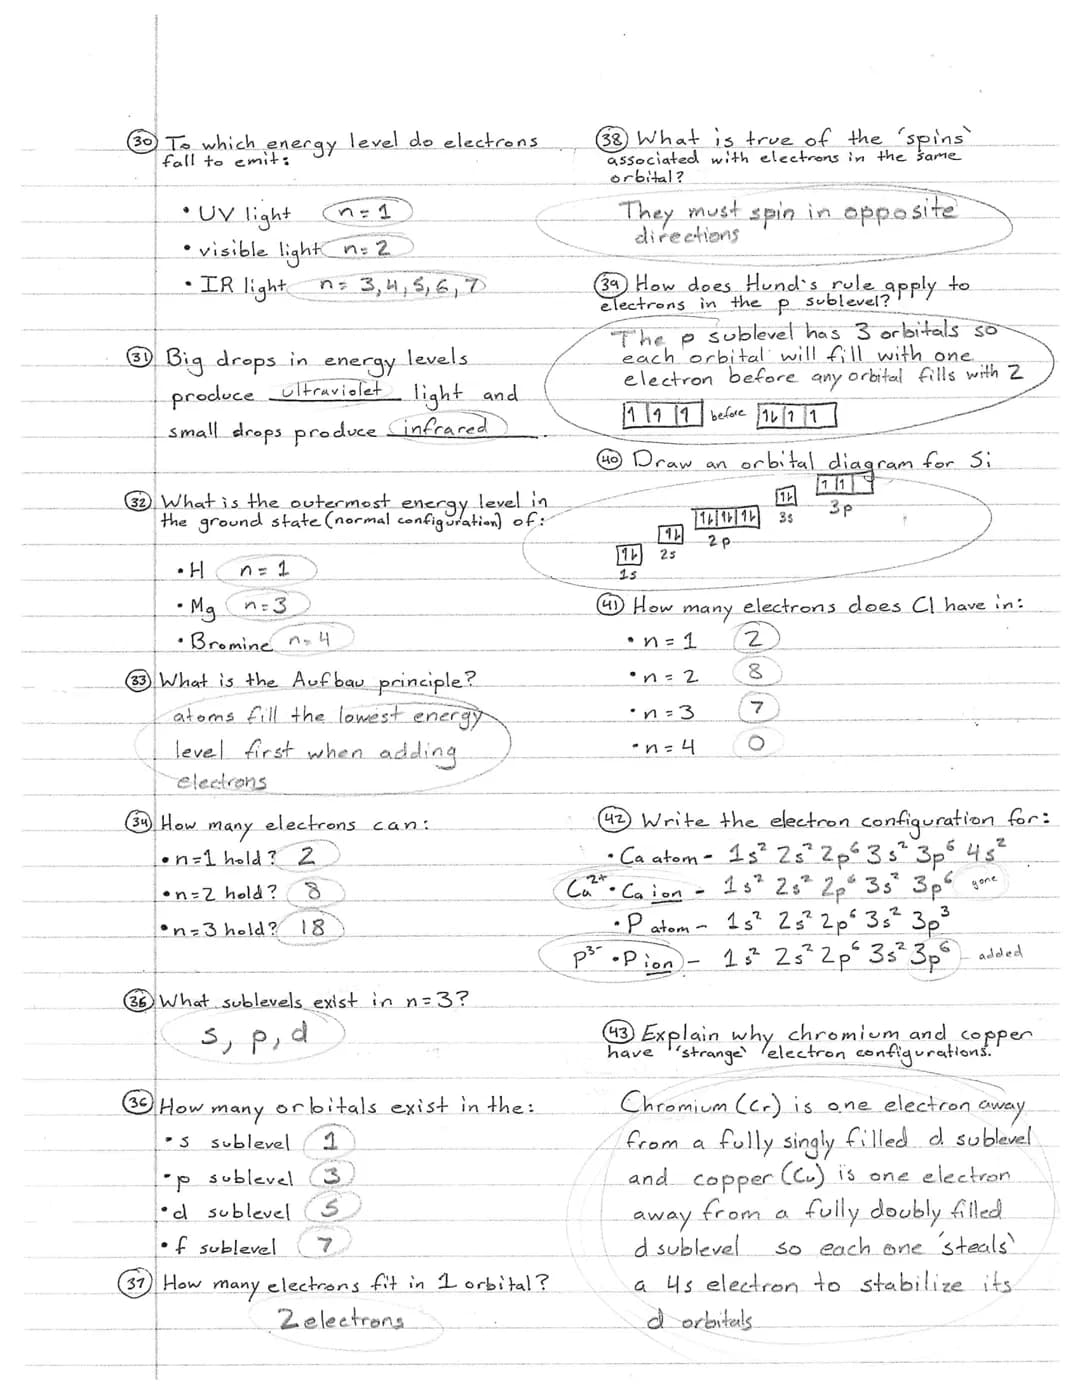 30 To which energy level do electrons
fall to emit:
• UV light n = 1
• visible light n = 2
• IR light n = 3,4,5,6,7
31 Big drops in energy levels
produce ultraviolet light and
small drops produce infrared.
32 What is the outermost energy level in
the ground state (normal configuration) of:
• H n = 1
• Mg n = 3
• Bromine n = 4
33 What is the Aufbau principle?
atoms fill the lowest energy
level first when adding
electrons
34 How many electrons can:
• n=1 hold? 2
• n=2 hold? 8
• n=3 hold? 18
36 What sublevels exist in n=3?
s, p, d
36 How many orbitals exist in the:
• s sublevel 1
• p sublevel 3
• d sublevel 5
• f sublevel 7
37 How many electrons fit in 1 orbital?
2 electrons
38 What is true of the 'spins'
associated with electrons in the same
orbital?
They must spin in opposite
directions
39 How does Hund's rule apply to
electrons in the p sublevel?
The p sublevel has 3 orbitals so
each orbital will fill with one
electron before any orbital fills with 2
↿ ↿ ↿ before ↿⇂ ↿ ↿
40 Draw an orbital diagram for Si
↿ ↿
3p
↿⇂
3s
↿⇂ ↿⇂ ↿⇂
2p
↿⇂
2s
↿⇂
1s
41 How many electrons does Cl have in:
• n = 1 2
• n = 2 8
• n = 3 7
• n = 4 0
42 Write the electron configuration for:
• Ca atom - 1s² 2s² 2p⁶ 3s² 3p⁶ 4s²
Ca²⁺ • Ca ion - 1s² 2s² 2p⁶ 3s² 3p⁶ gone
• P atom - 1s² 2s² 2p⁶ 3s² 3p³
P³⁻ • P ion - 1s² 2s² 2p⁶ 3s² 3p⁶ added
43 Explain why chromium and copper
have 'strange' electron configurations.
Chromium (Cr) is one electron away
from a fully singly filled d sublevel
and copper (Cu) is one electron
away from a fully doubly filled
d sublevel so each one 'steals'
a 4s electron to stabilize its
d orbitals